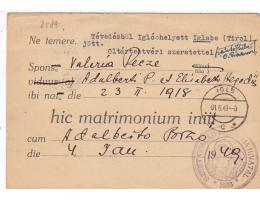 Ne temere.
Tévedésből Iglóhelyett Iglsbe (Tirol)
jött.
Oltártestvéri szeretettel
Spons. Valeria Vecze
viduus(a) Adalberti P. et Elisabeth Hegedűs
filia
ibi nat. die 23 II. 1918
IGLS
hic matrimonium iniit
cum Adalberto
die 4 Jan. 1949.